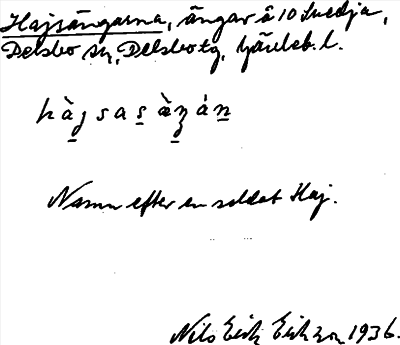 Hajsängarna, ängar å 10 Svedja,
Delsbo sn, Delsbo tg, Gävleb. l.
hàj sa s æ̀ŋ án
Namn efter en soldat Haj.
Nils Erik Erikson 1936.